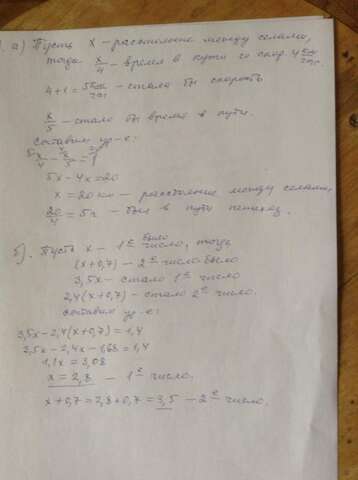 а) Пусть x - расстояние между селами,
тогда x/4 - время в пути со скор. 4 км/час.
4+1=5 км/час - стала бы скорость
x/5 - стало бы время в пути.
Составим ур-е:
x/4 - x/5 = 1
5x - 4x = 20
x = 20 км - расстояние между селами,
20/4 = 5 г. - был в пути пешеход.
б). Пусть x - 1е было число, тогда
(x+0,7) - 2е число было
3,5x - стало 1е число
2,4(x+0,7) - стало 2е число.
составим ур-е:
3,5x-2,4(x+0,7)=1,4
3,5x-2,4x-1,68=1,4
1,1x = 3,08
x = 2,8 - 1е число.
x+0,7 = 2,8+0,7 = 3,5 - 2е число.